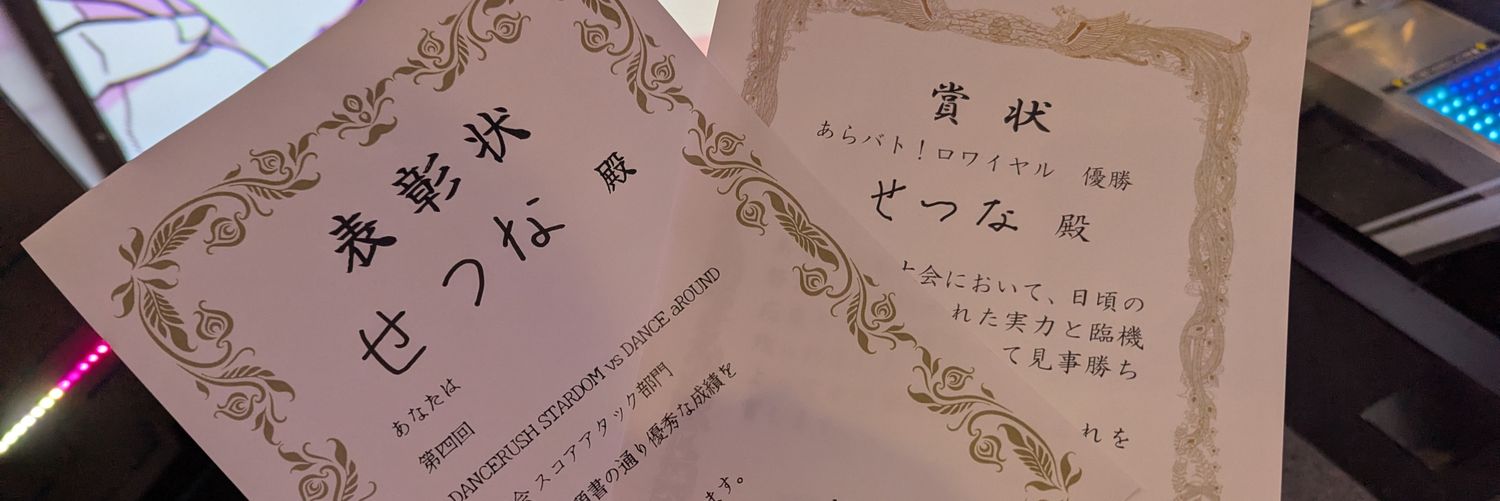 表彰状
せつな 殿
あなたは
第四回
DANCERUSH STARDOM vs DANCE aROUND
会 スコアアタック部門
書の通り優秀な成績を
ます。
賞状
あらバト！ロワイヤル 優勝
せつな 殿
会において、日頃の
れた実力と臨機
て見事勝ち
れを